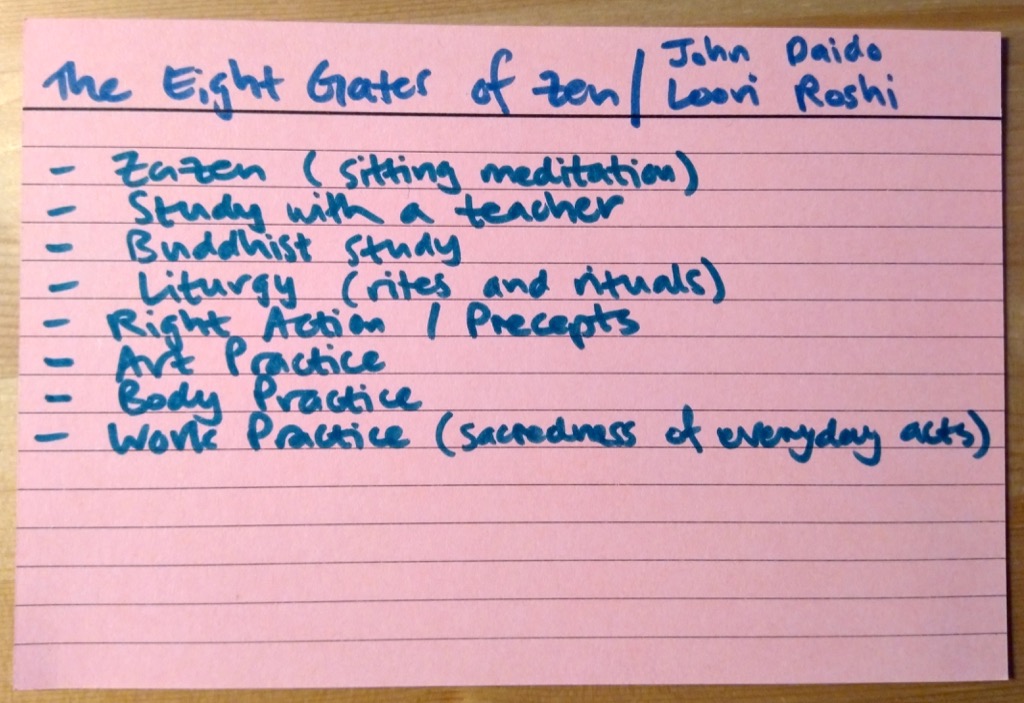 The Eight Gates of Zen / John Daido
Loori Roshi
- Zazen (sitting meditation)
- Study with a teacher
- Buddhist study
- Liturgy (rites and rituals)
- Right Action / Precepts
- Art Practice
- Body Practice
- Work Practice (sacredness of everyday acts)